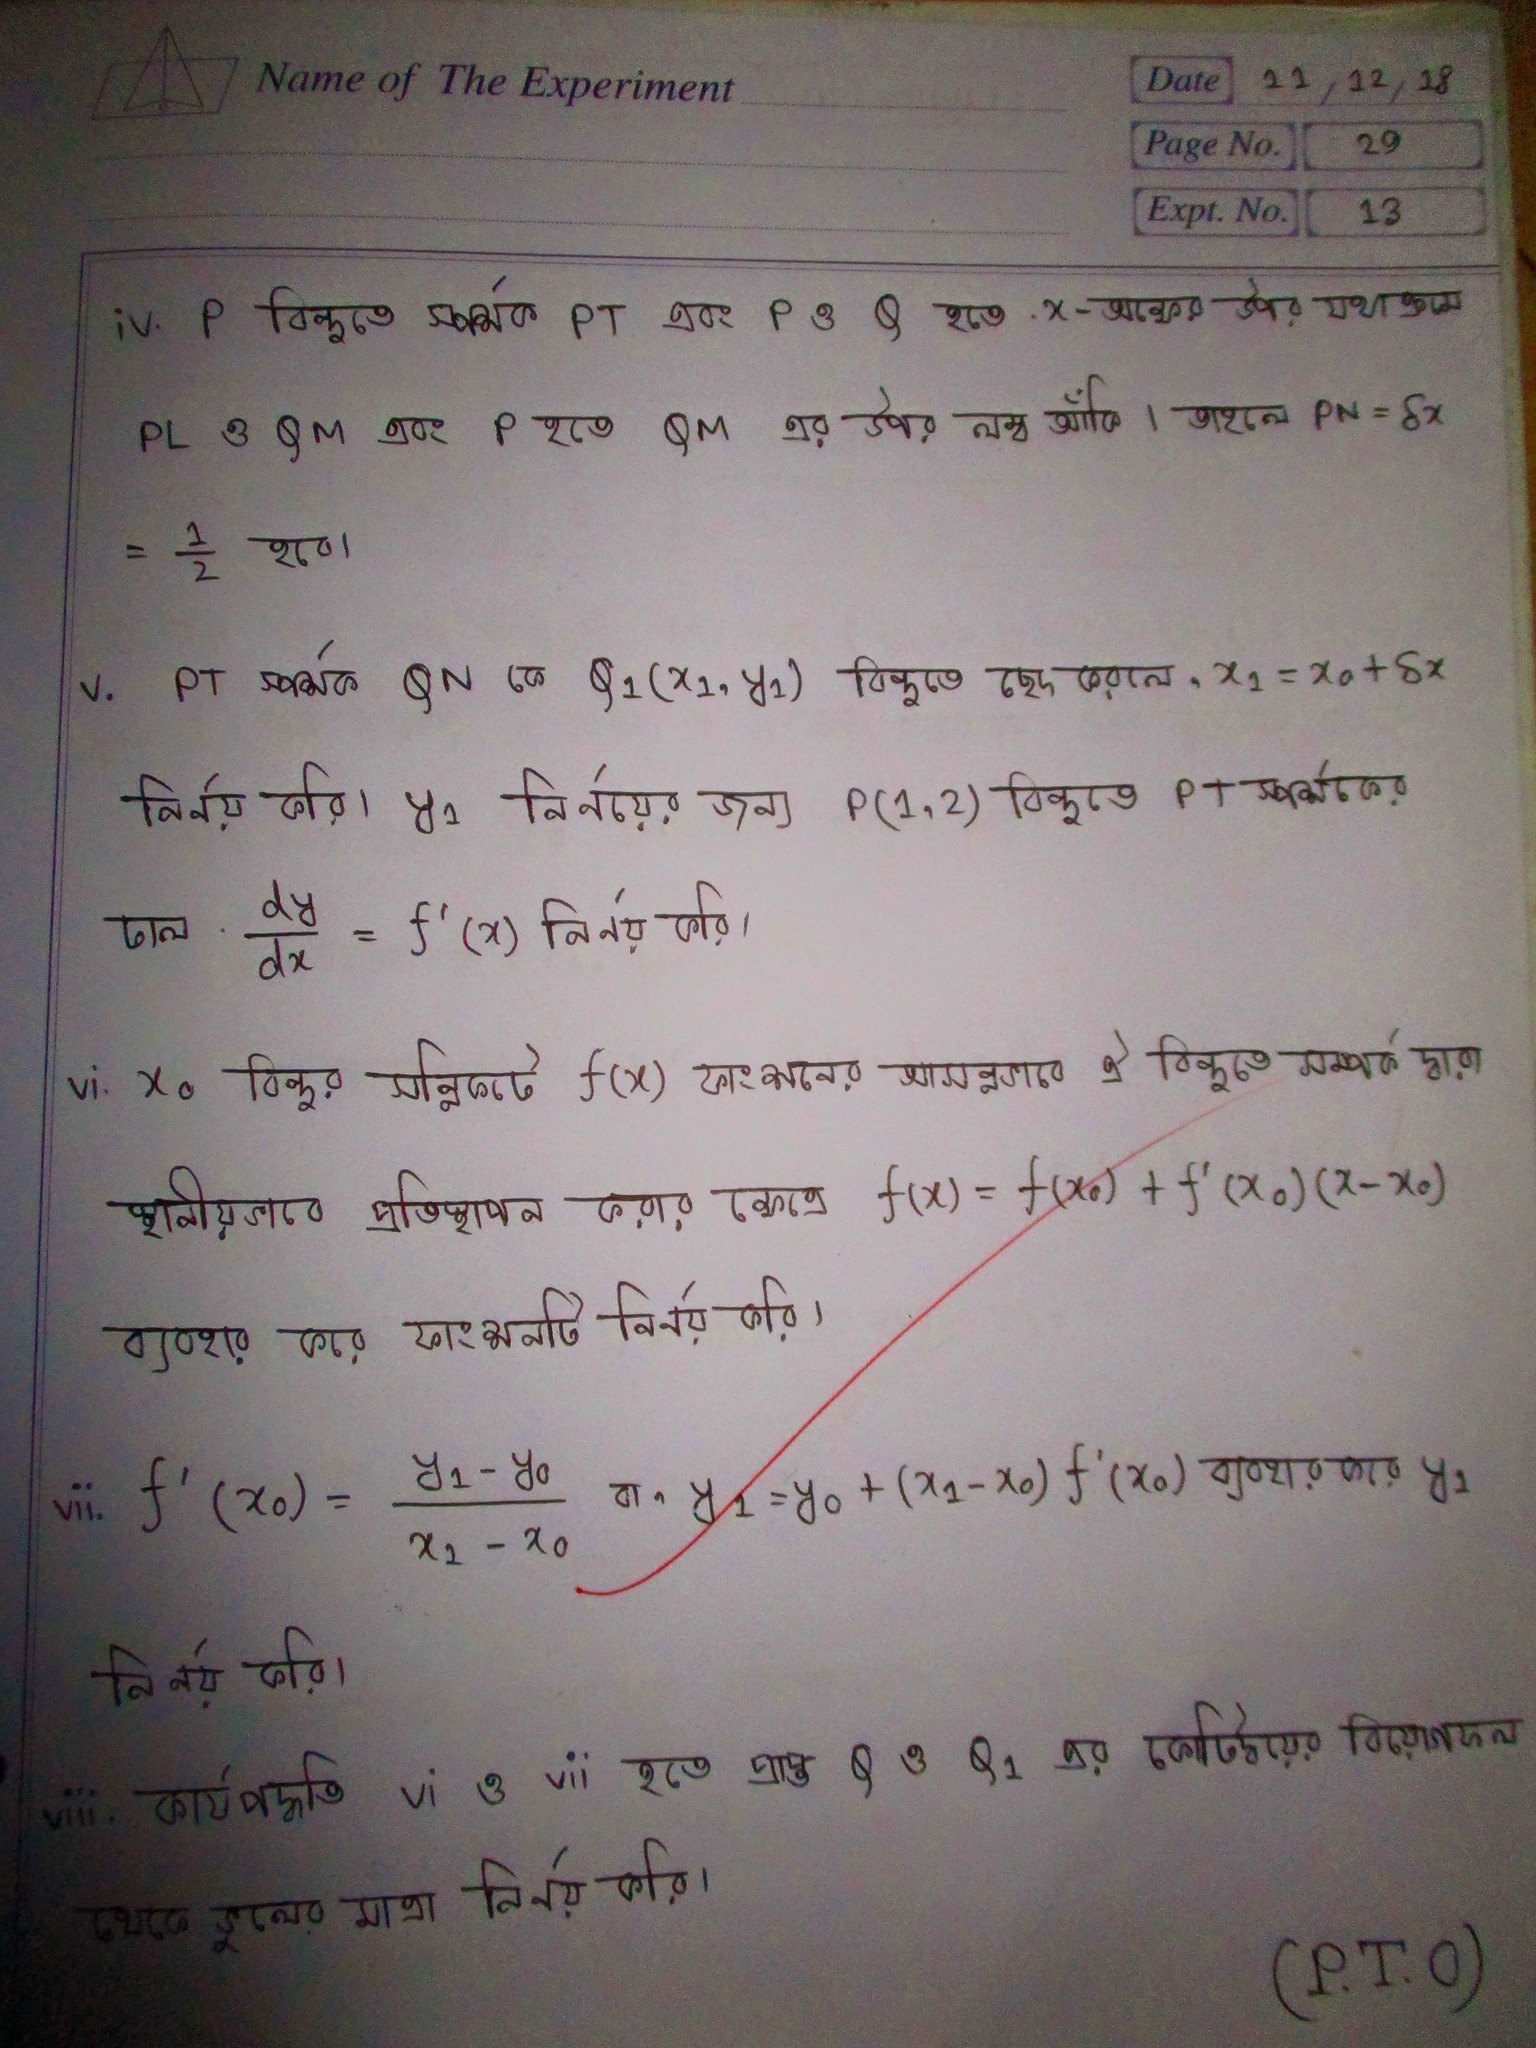 Name of The Experiment
Date 11/12/18
Page No. 29
Expt. No. 13
iv. P বিন্দুতে স্পর্শক PT এবং P ও Q হতে x-অক্ষের উপর যথাক্রমে
PL ও QM এবং P হতে QM এর উপর লম্ব আঁকি। তাহলে PN = δx
= 1/2 হবে।
v. PT স্পর্শক QN কে Q1(x1, y1) বিন্দুতে ছেদ করলে, x1 = x0 + δx
নির্ণয় করি। y1 নির্ণয়ের জন্য P(1,2) বিন্দুতে PT স্পর্শকের
ঢাল dy/dx = f'(x) নির্ণয় করি।
vi. x0 বিন্দুর সন্নিকটে f(x) ফাংশনের আসন্নভাবে ঐ বিন্দুতে সম্পর্ক দ্বারা
স্থানীয়ভাবে প্রতিস্থাপন করার ক্ষেত্রে f(x) = f(x0) + f'(x0)(x-x0)
ব্যবহার করে ফাংশনটি নির্ণয় করি।
vii. f'(x0) = (y1 - y0)/(x1 - x0) বা, y1 = y0 + (x1-x0) f'(x0) ব্যবহার করে y1
নির্ণয় করি।
viii. কার্যপদ্ধতি vi ও vii হতে প্রাপ্ত Q ও Q1 এর কোটিদ্বয়ের বিয়োগফল
থেকে ভুলের মাত্রা নির্ণয় করি।
(P.T.O)